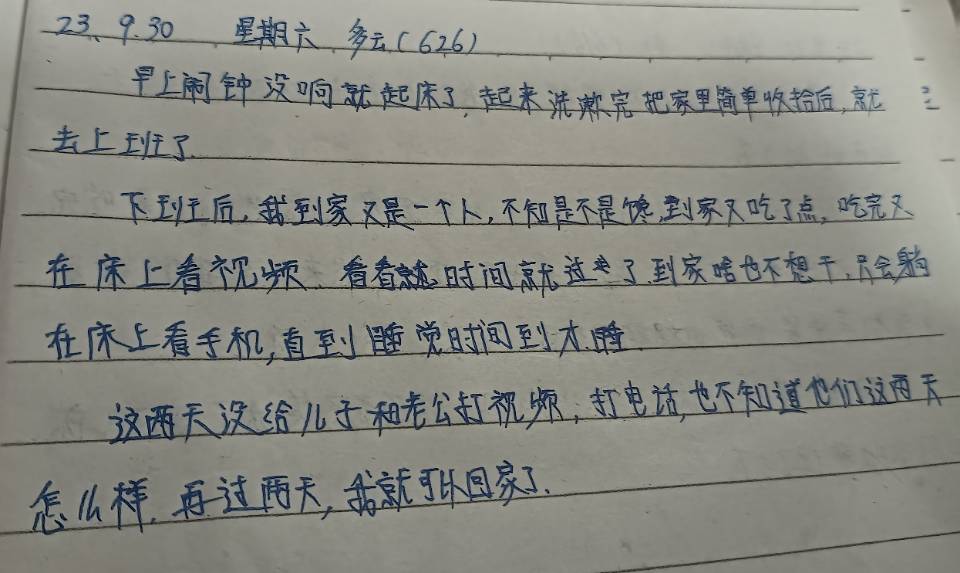 23、9.30 星期六 多云(626)
早上闹钟没响就起床了,起来洗漱完把家里简单收拾后,就
去上班了.
下班后,我到家又是一个人,不知是不是馋,到家又吃了点,吃完又
在床上看视频.看看就时间就过去了,到家啥也不想干,只会躺
在床上看手机,直到睡觉时间到才睡.
这两天没给儿子和老公打视频,打电话,也不知道他们这两天
怎么样,再过两天,我就可以回家了.